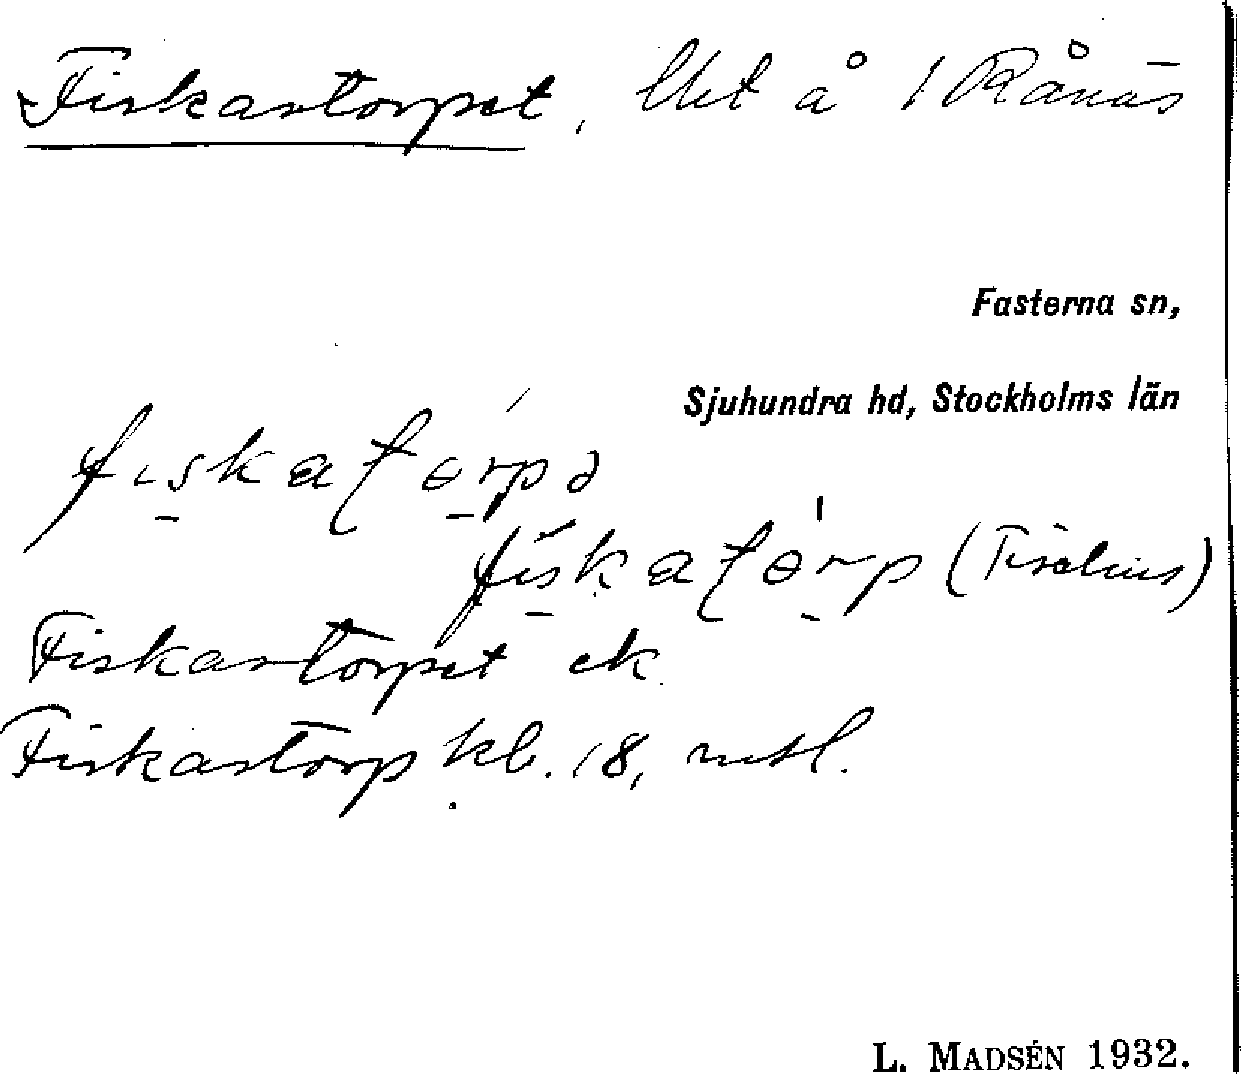 Fiskartorpet, lht å 1 Rånäs
Fasterna sn,
Sjuhundra hd, Stockholms län
fiskatorpə
fiskatorp (Tiselius)
Fiskartorpet ek.
Fiskartorp kb. 18, mtl.
L. MADSÉN 1932.